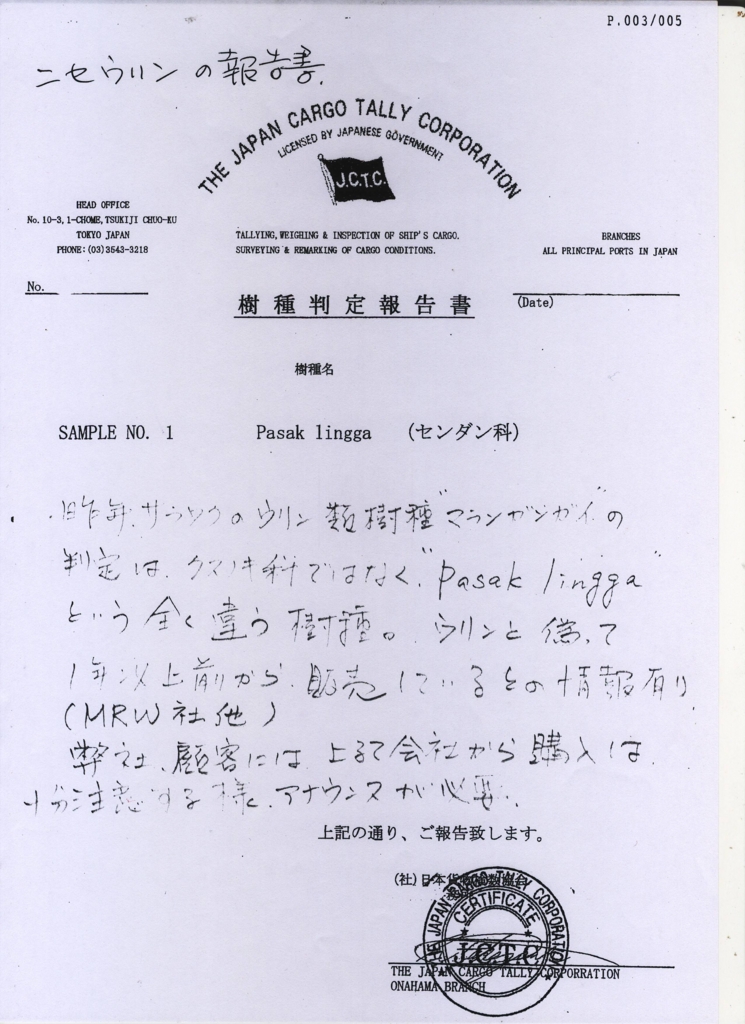 P.003/005
ニセウリンの報告書.
THE JAPAN CARGO TALLY CORPORATION
LICENSED BY JAPANESE GOVERNMENT
J.C.T.C.
HEAD OFFICE
No. 10-3, 1-CHOME, TSUKIJI CHUO-KU
TOKYO JAPAN
PHONE: (03)3543-3218
TALLYING, WEIGHING & INSPECTION OF SHIP'S CARGO.
SURVEYING & REMARKING OF CARGO CONDITIONS.
BRANCHES
ALL PRINCIPAL PORTS IN JAPAN
No.
(Date)
樹種判定報告書
樹種名
SAMPLE NO. 1 Pasak lingga (センダン科)
昨年.サラワクのウリン類樹種"マランガンガイ"の
判定は、クスノキ科ではなく、"Pasak lingga"
という全く違う樹種。ウリンと偽って
1年以上前から、販売しているとの情報有り
(MRW社他)
弊社、顧客には、上記会社から購入は
十分注意する様、アナウンスが必要.
上記の通り、ご報告致します。
(社)日本貨物
THE JAPAN CARGO TALLY CORPORATION
CERTIFICATE
J.C.T.C
THE JAPAN CARGO TALLY CORPORRATION
ONAHAMA BRANCH